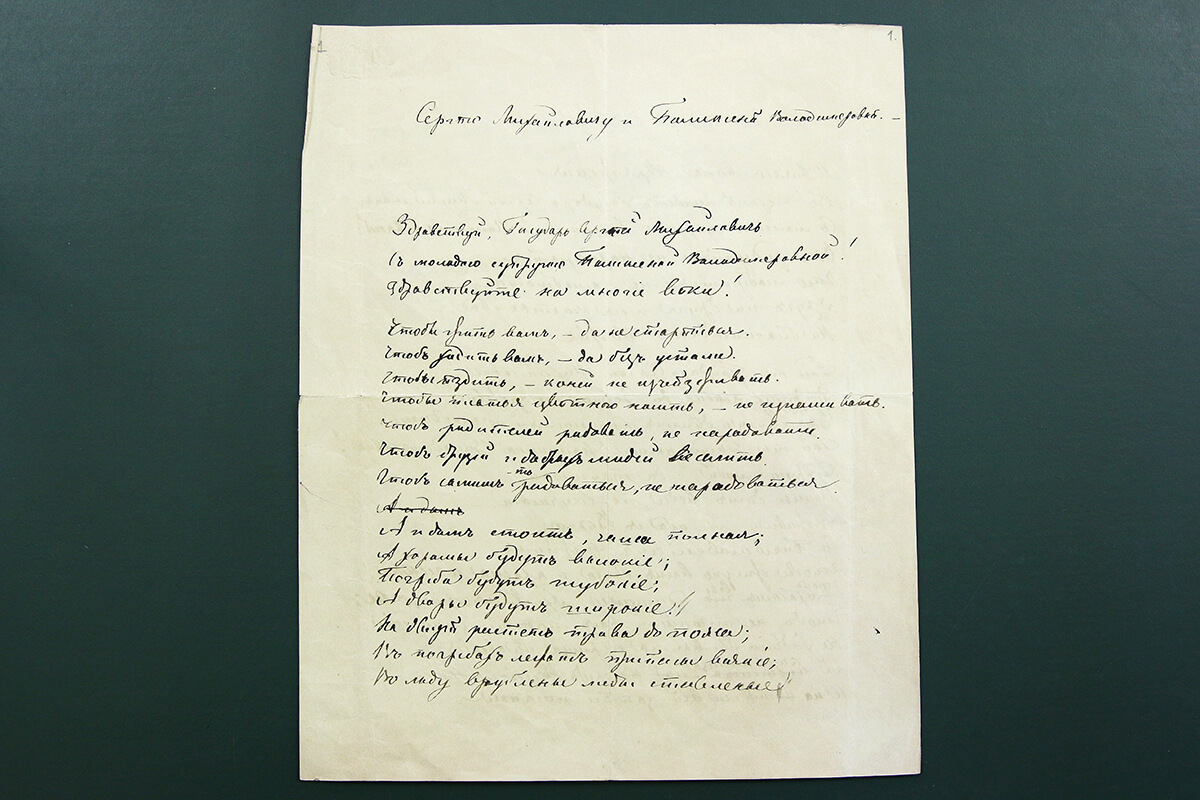 1
1.
Сергѣю Михайловичу и Пелагеей Владимеровнѣ. —
Здравствуй, Государь Сергѣй Михайловичъ
Съ молодою супругою Владимеровной!
Здравствуйте на многіе вѣки!
Чтобы жить вамъ, — да не старѣться.
Чтобъ вамъ, — да безъ устали.
Чтобы ѣздить, — коней не изъѣзживать.
Чтобы платья цвѣтного носить, — не изнашивать.
Чтобъ родителей радовать, не нарадовать.
Чтобъ друзей и добрыхъ людей веселить
Чтобъ самимъ-то радоваться, не нарадоваться
А и домъ
А и домъ стоитъ, чаша полная;
А хоромы будутъ высокіе;
Погреба будутъ глубокіе;
А дворы будутъ широкіе!
На дворѣ растетъ трава до пояса;
Въ погребахъ лежатъ припасы всякіе;
Во льду врублены меды ставленые!